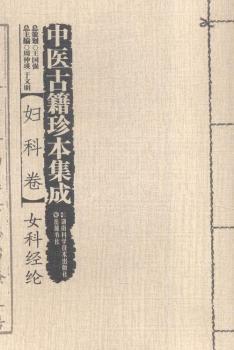 中医古籍珍本集成
总策划◎王国强
总主编◎周仲瑛 于文明
【妇科卷】
女科经纶
湖南科学技术出版社
岳麓书社